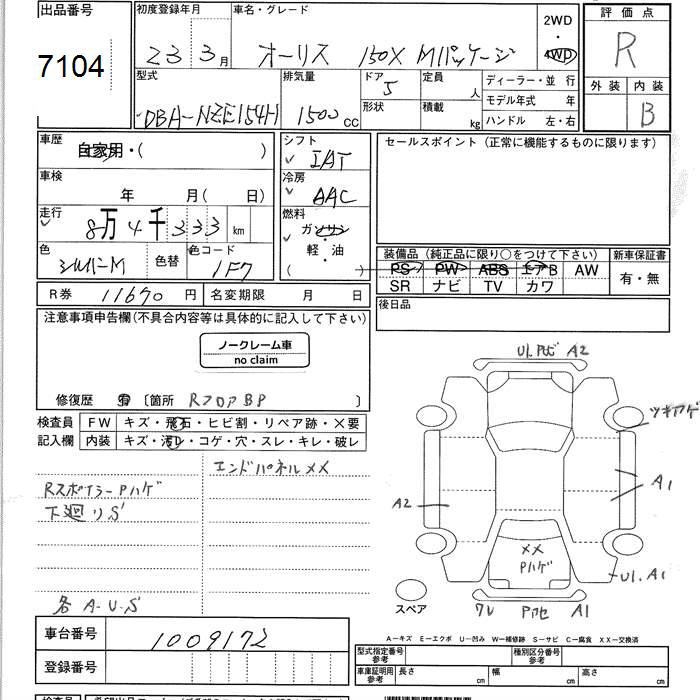 出品番号
7104
初度登録年月
23 3月
車名・グレード
オーリス 150X Mパッケージ
2WD
・
4WD
評価点
R
外装 内装
B
型式
DBA-NZE154H
排気量
1500 cc
ドア
5
形状
定員
人
積載
kg
ディーラー・並 行
モデル年式 年
ハンドル 左・右
車歴
自家用・( )
車検
年 月( )
走行
8万4千333 km
色
シルバーM
色替
色コード
1F7
シフト
IAT
冷房
AAC
燃料
ガソリン
・
軽・油
( )
セールスポイント(正常に機能するものに限ります)
装備品(純正品に限り○をつけて下さい)
PS PW ABS エアB AW
SR ナビ TV カワ
新車保証書
有・無
後日品
R券 11670 円
名変期限 月 日
注意事項申告欄(不具合内容等は具体的に記入して下さい)
ノークレーム車
no claim
修復歴 有 〔箇所 RフロアBP 〕
検査員
記入欄
FW キズ・飛石・ヒビ割・リペア跡・×要
内装 キズ・汚レ・コゲ・穴・スレ・キレ・破レ
エンドパネルXX
RスポイラーPハゲ
下廻りS
各A・U・S
車台番号 1009172
登録番号
U1. A2
ツキアゲ
A1
A2
XX
Pハゲ
U1. A1
スペア
A1
A-キズ E-エクボ U-凹み W-補修跡 S-サビ C-腐食 XX-交換済
型式指定番号
参考
種別区分番号
参考
車庫証明用
参考
長さ cm
幅 cm
高さ cm